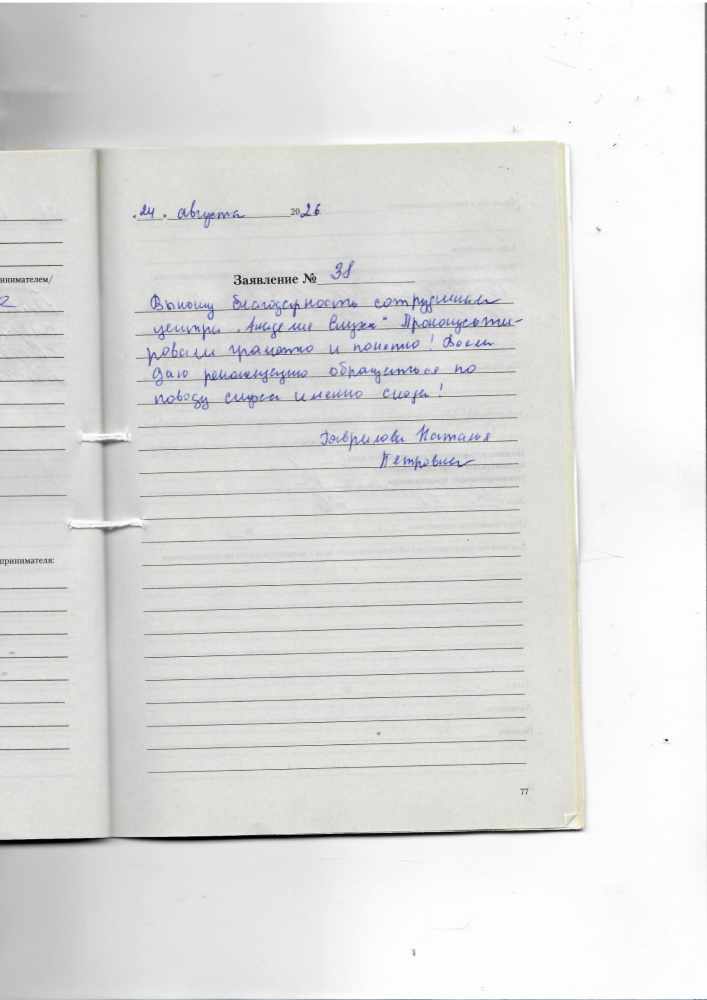 „24“ августа 2026
Заявление № 38
инимателем/
Выношу благодарность сотрудникам
центра „Академия Слуха“ Проконсульти-
ровали грамотно и понятно! Всем
даю рекомендацию обращаться по
поводу слуха именно сюда!
Гаврилова Наталья
Петровна
принимателя:
77